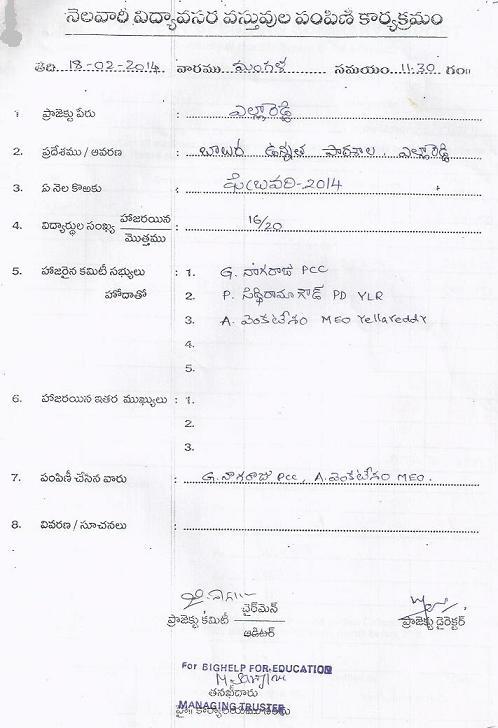 నెలవారీ విద్యావసర వస్తువుల పంపిణి కార్యక్రమం
తేది 18-02-2014 వారము మంగళ సమయం 11.30 గం॥
1 ప్రాజెక్టు పేరు : ఎల్లారెడ్డి
2. ప్రదేశము / ఆవరణ : బాలుర ఉన్నత పాఠశాల, ఎల్లారెడ్డి
3. ఏ నెల కొఱకు : ఫిబ్రవరి-2014
4. విద్యార్థుల సంఖ్య హాజరయిన / మొత్తము : 16/20
5. హాజరైన కమిటీ సభ్యులు : 1. G. నాగరాజు PCC
హోదాతో 2. P. సిద్ధిరామాగౌడ్ PD YLR
3. A. వెంకటేశం MEO Yellareddy
4.
5.
6. హాజరయిన ఇతర ముఖ్యులు : 1.
2.
3.
7. పంపిణీ చేసిన వారు : G. నాగరాజు PCC, A. వెంకటేశం MEO.
8. వివరణ / సూచనలు :
ప్రాజెక్టు కమిటీ ఛైర్మెన్ / ఆడిటర్ ప్రాజెక్టు డైరెక్టర్
For BIGHELP FOR EDUCATION
తనఖీదారు
MANAGING TRUSTEE